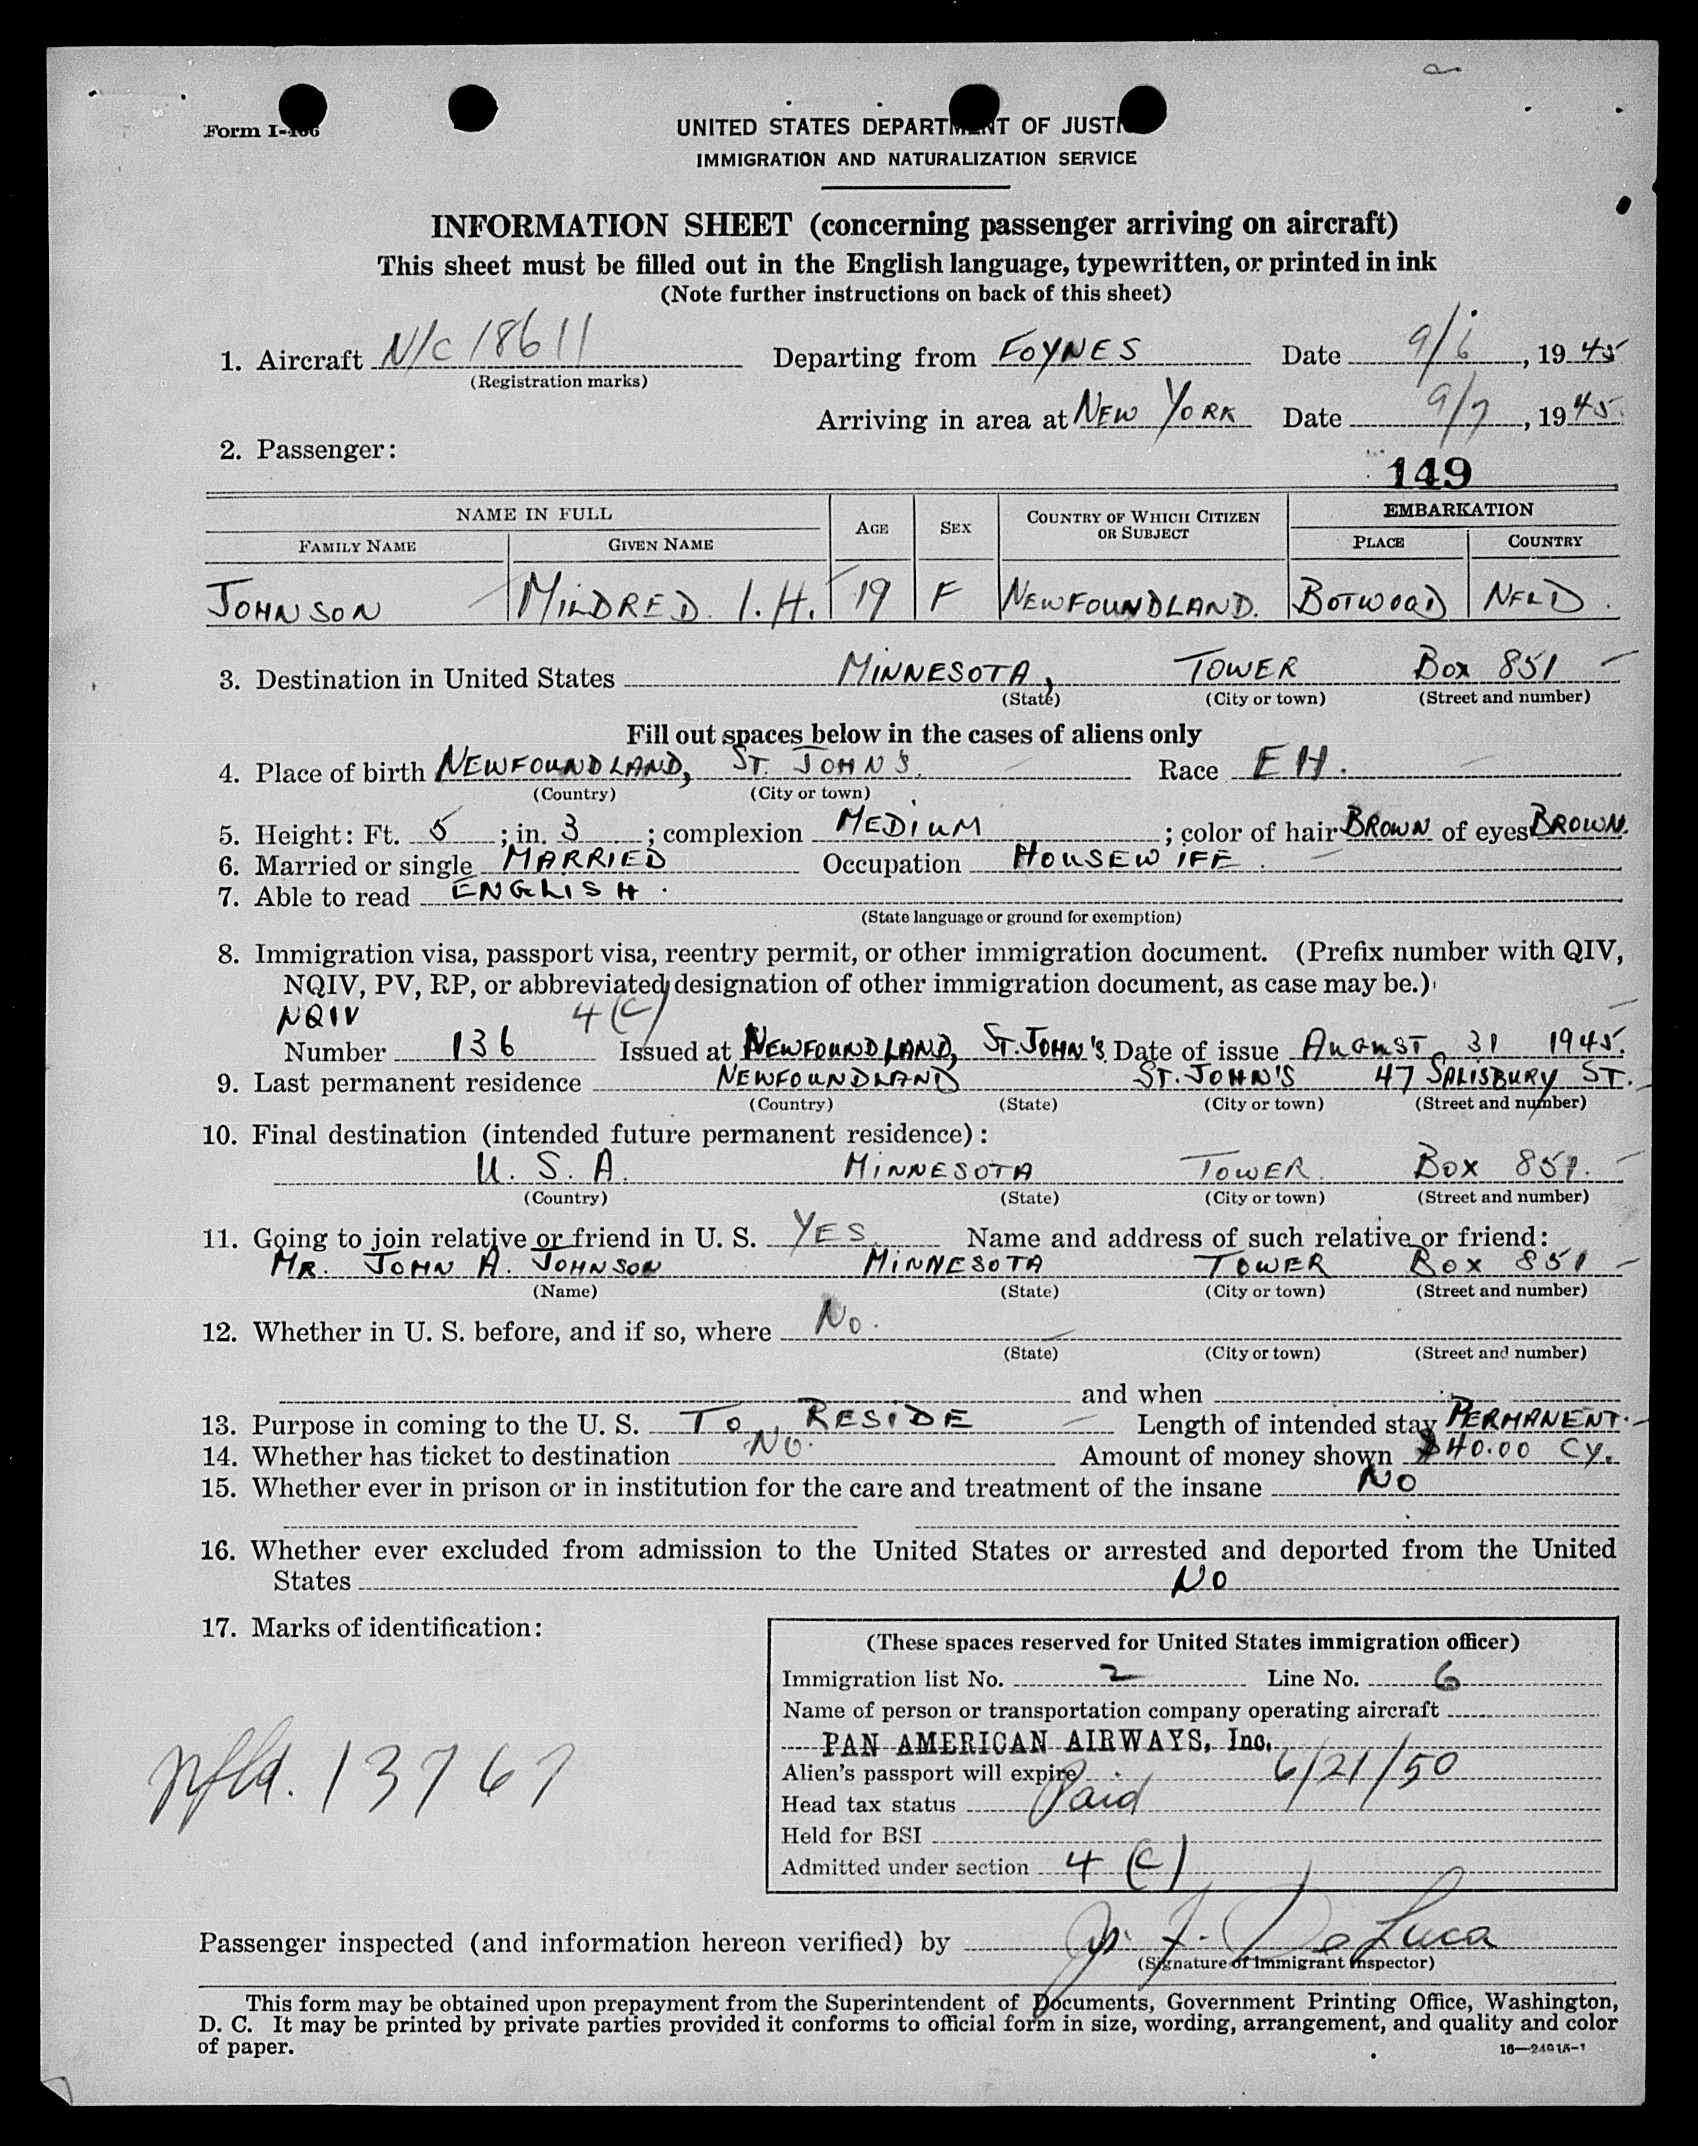 Form I-466
UNITED STATES DEPARTMENT OF JUSTICE
IMMIGRATION AND NATURALIZATION SERVICE
INFORMATION SHEET (concerning passenger arriving on aircraft)
This sheet must be filled out in the English language, typewritten, or printed in ink
(Note further instructions on back of this sheet)
1. Aircraft N/C 18611 Departing from FOYNES Date 9/6, 1945
(Registration marks)
Arriving in area at NEW YORK Date 9/7, 1945
2. Passenger:
149
NAME IN FULL AGE SEX COUNTRY OF WHICH CITIZEN OR SUBJECT EMBARKATION
FAMILY NAME GIVEN NAME PLACE COUNTRY
JOHNSON MILDRED. I. H. 19 F NEWFOUNDLAND. BOTWOOD NFLD.
3. Destination in United States MINNESOTA, TOWER Box 851
(State) (City or town) (Street and number)
Fill out spaces below in the cases of aliens only
4. Place of birth NEWFOUNDLAND, ST. JOHN'S. Race EH.
(Country) (City or town)
5. Height: Ft. 5; in. 3; complexion MEDIUM; color of hair BROWN of eyes BROWN.
6. Married or single MARRIED Occupation HOUSEWIFE.
7. Able to read ENGLISH.
(State language or ground for exemption)
8. Immigration visa, passport visa, reentry permit, or other immigration document. (Prefix number with QIV,
NQIV, PV, RP, or abbreviated designation of other immigration document, as case may be.)
NQIV 4(C)
Number 136 Issued at NEWFOUNDLAND, ST. JOHN'S Date of issue AUGUST 31 1945.
9. Last permanent residence NEWFOUNDLAND ST. JOHN'S 47 SALISBURY ST.
(Country) (State) (City or town) (Street and number)
10. Final destination (intended future permanent residence):
U. S. A. MINNESOTA TOWER. Box 851.
(Country) (State) (City or town) (Street and number)
11. Going to join relative or friend in U. S. YES. Name and address of such relative or friend:
MR. JOHN A. JOHNSON MINNESOTA TOWER Box 851
(Name) (State) (City or town) (Street and number)
12. Whether in U. S. before, and if so, where No.
(State) (City or town) (Street and number)
and when
13. Purpose in coming to the U. S. TO RESIDE Length of intended stay PERMANENT.
14. Whether has ticket to destination NO. Amount of money shown $40.00 Cy.
15. Whether ever in prison or in institution for the care and treatment of the insane NO
16. Whether ever excluded from admission to the United States or arrested and deported from the United
States NO
17. Marks of identification:
(These spaces reserved for United States immigration officer)
Immigration list No. 2 Line No. 6
Name of person or transportation company operating aircraft
PAN AMERICAN AIRWAYS, Inc.
Alien's passport will expire 6/21/50
Nfld. 13767
Head tax status Paid
Held for BSI
Admitted under section 4 (C)
Passenger inspected (and information hereon verified) by F. DeLuca
(Signature of Immigrant Inspector)
This form may be obtained upon prepayment from the Superintendent of Documents, Government Printing Office, Washington,
D. C. It may be printed by private parties provided it conforms to official form in size, wording, arrangement, and quality and color
of paper.